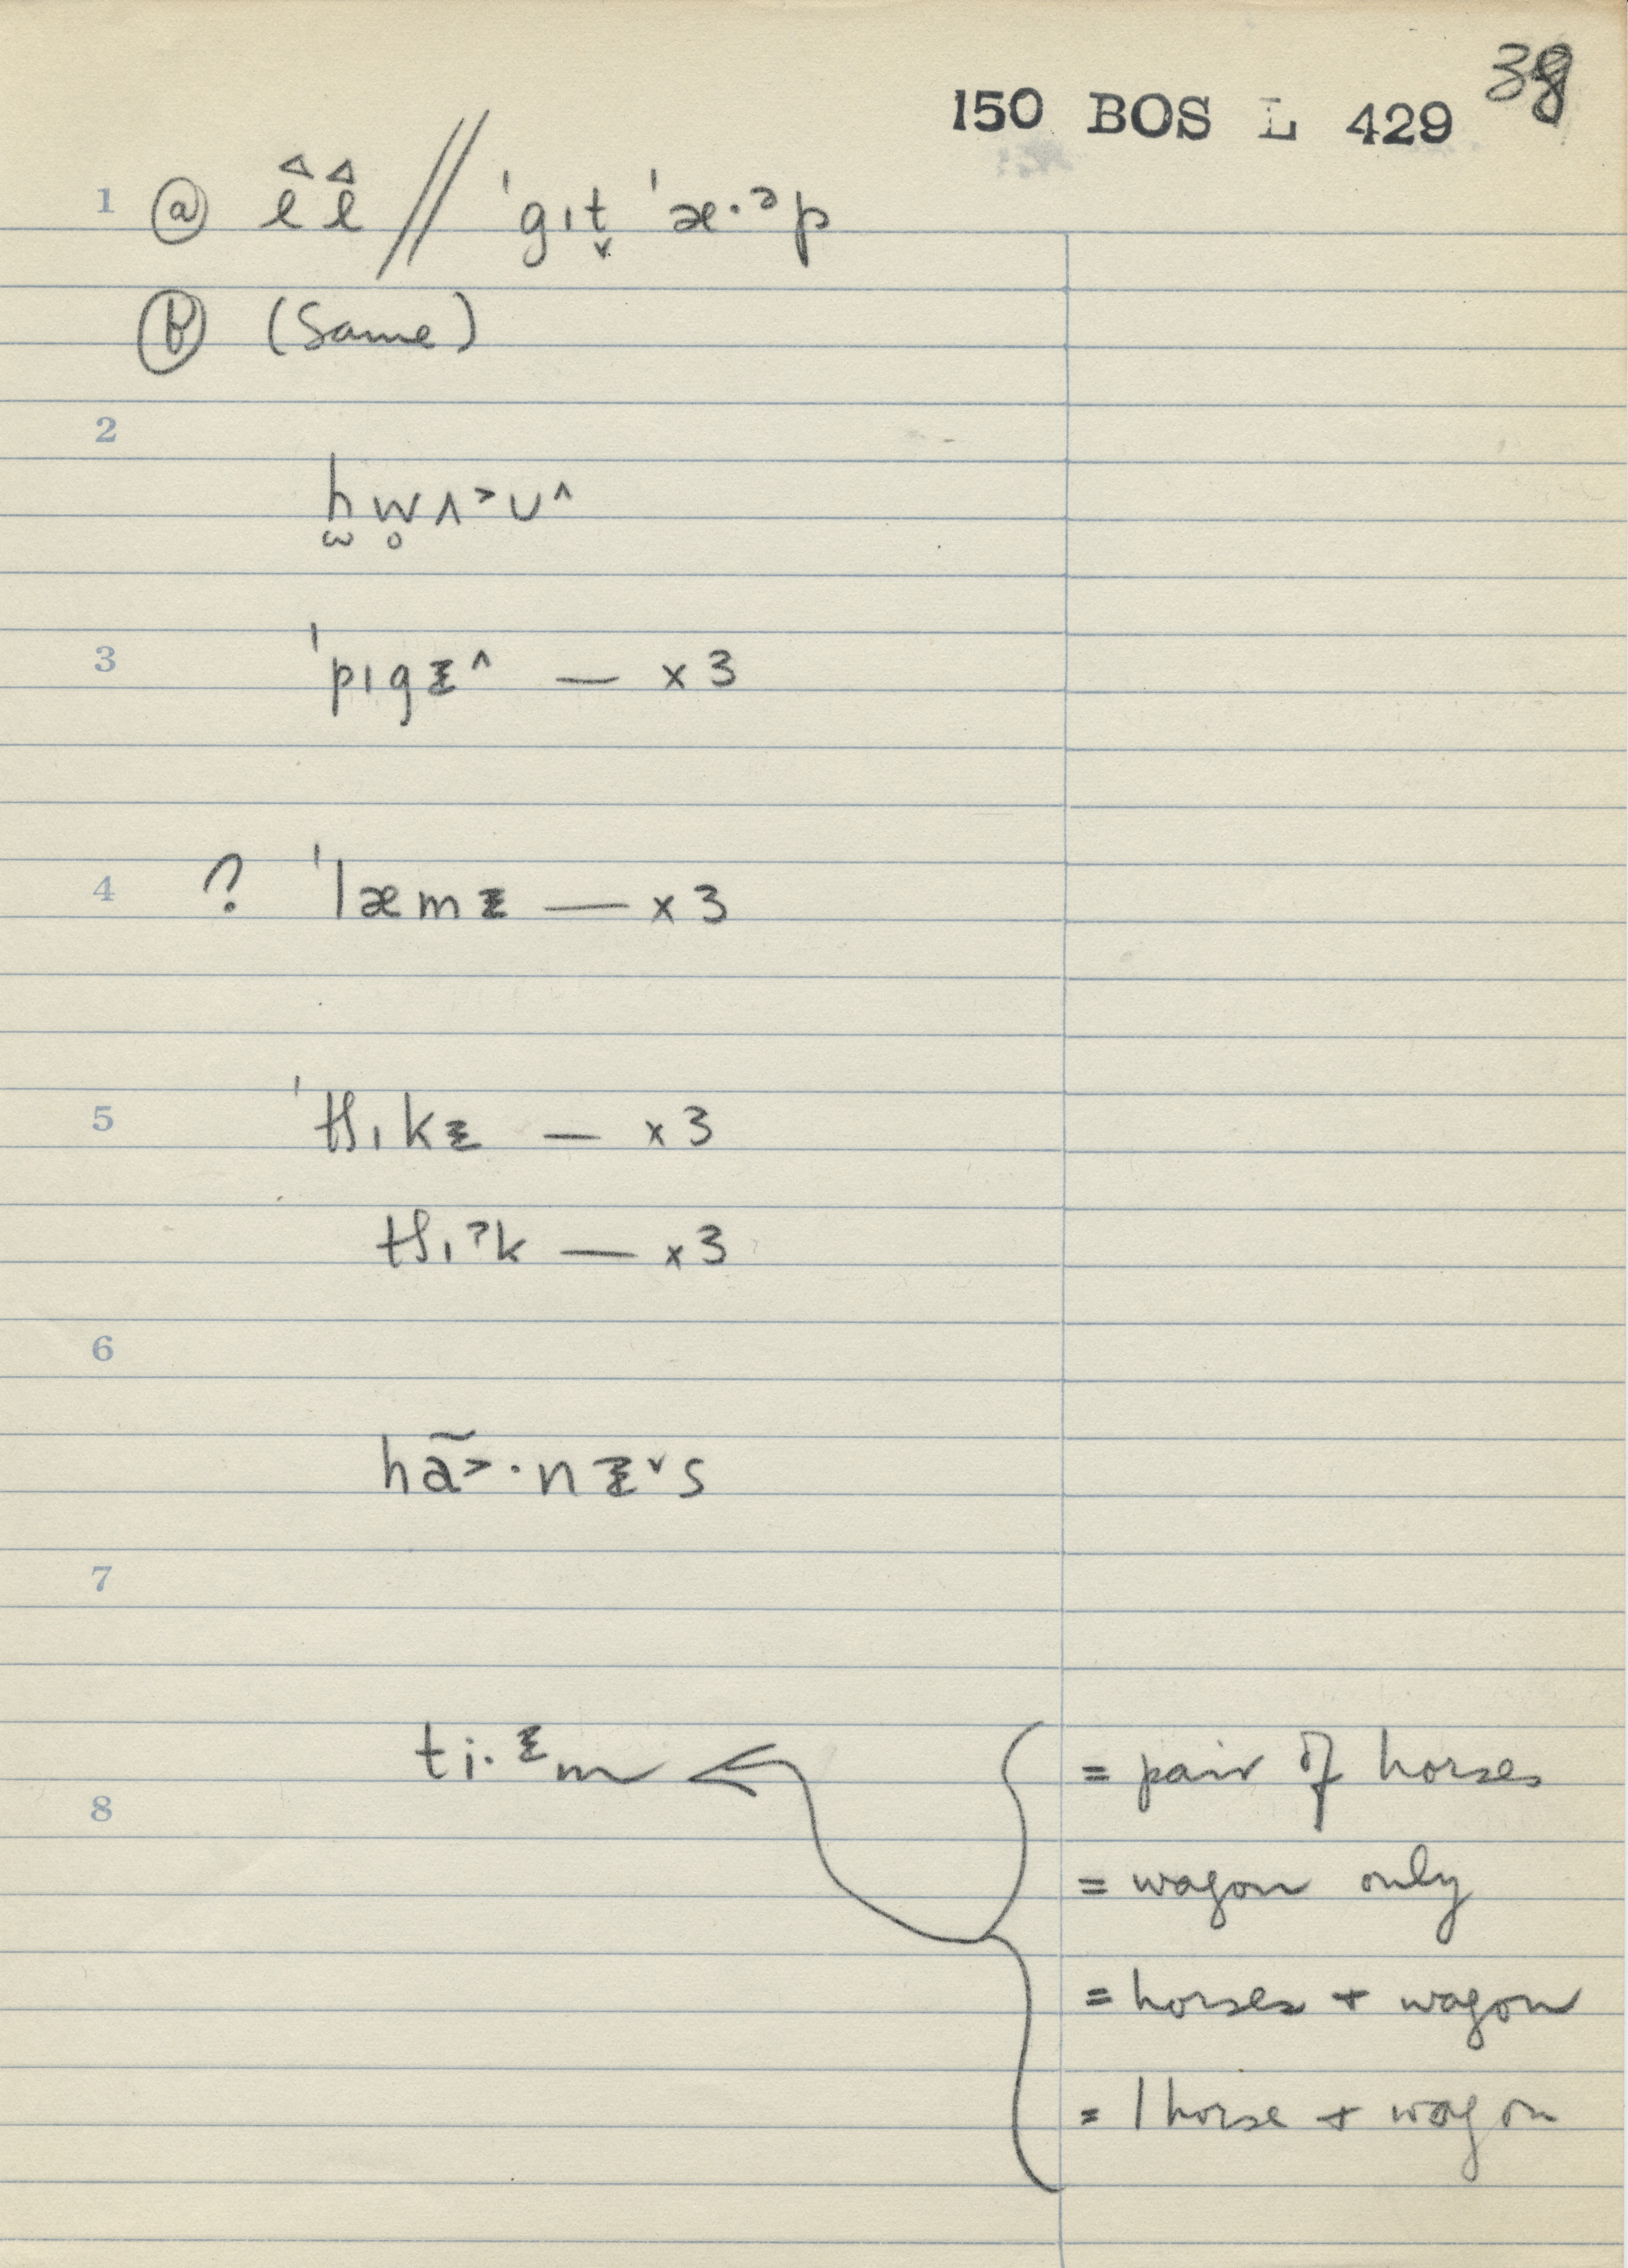 38
150 BOS L 429
1 ⓐ l̂ l̂ // ˈgɪt̬ ˈæ·ᵊp
ⓑ (Same)
2
hw̥ʌ˃ʊ^
3 ˈpɪgɪ̵^ — x 3
4 ? ˈlæmɪ̵ — x 3
5 ˈtʃɪkɪ̵ — x 3
tʃɪˀk — x 3
6
hã˃·nɪ̵˅s
7
ti·ᵻm
= pair of horses
8
= wagon only
= horses + wagon
= 1 horse + wagon